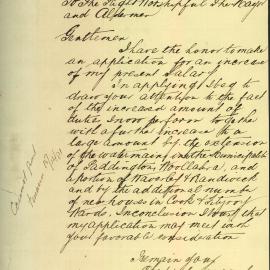 To The Right Worshipful The Mayor
and Aldermen
Gentlemen
I have the honor to make
an application for an increase
of my present Salary
In applying I beg to
draw your attention to the fact
of the increased amount of
duties I now perform together
with a further increase to a
large amount by the extension
of the water mains in the Municipalities
of Paddington, Woollahra, and
a portion of Waverley & Randwick
and by the additional number
of new houses in Cook & Fitzroy
Wards. In conclusion I trust that
my application may meet with
your favorable consideration
I remain Gent